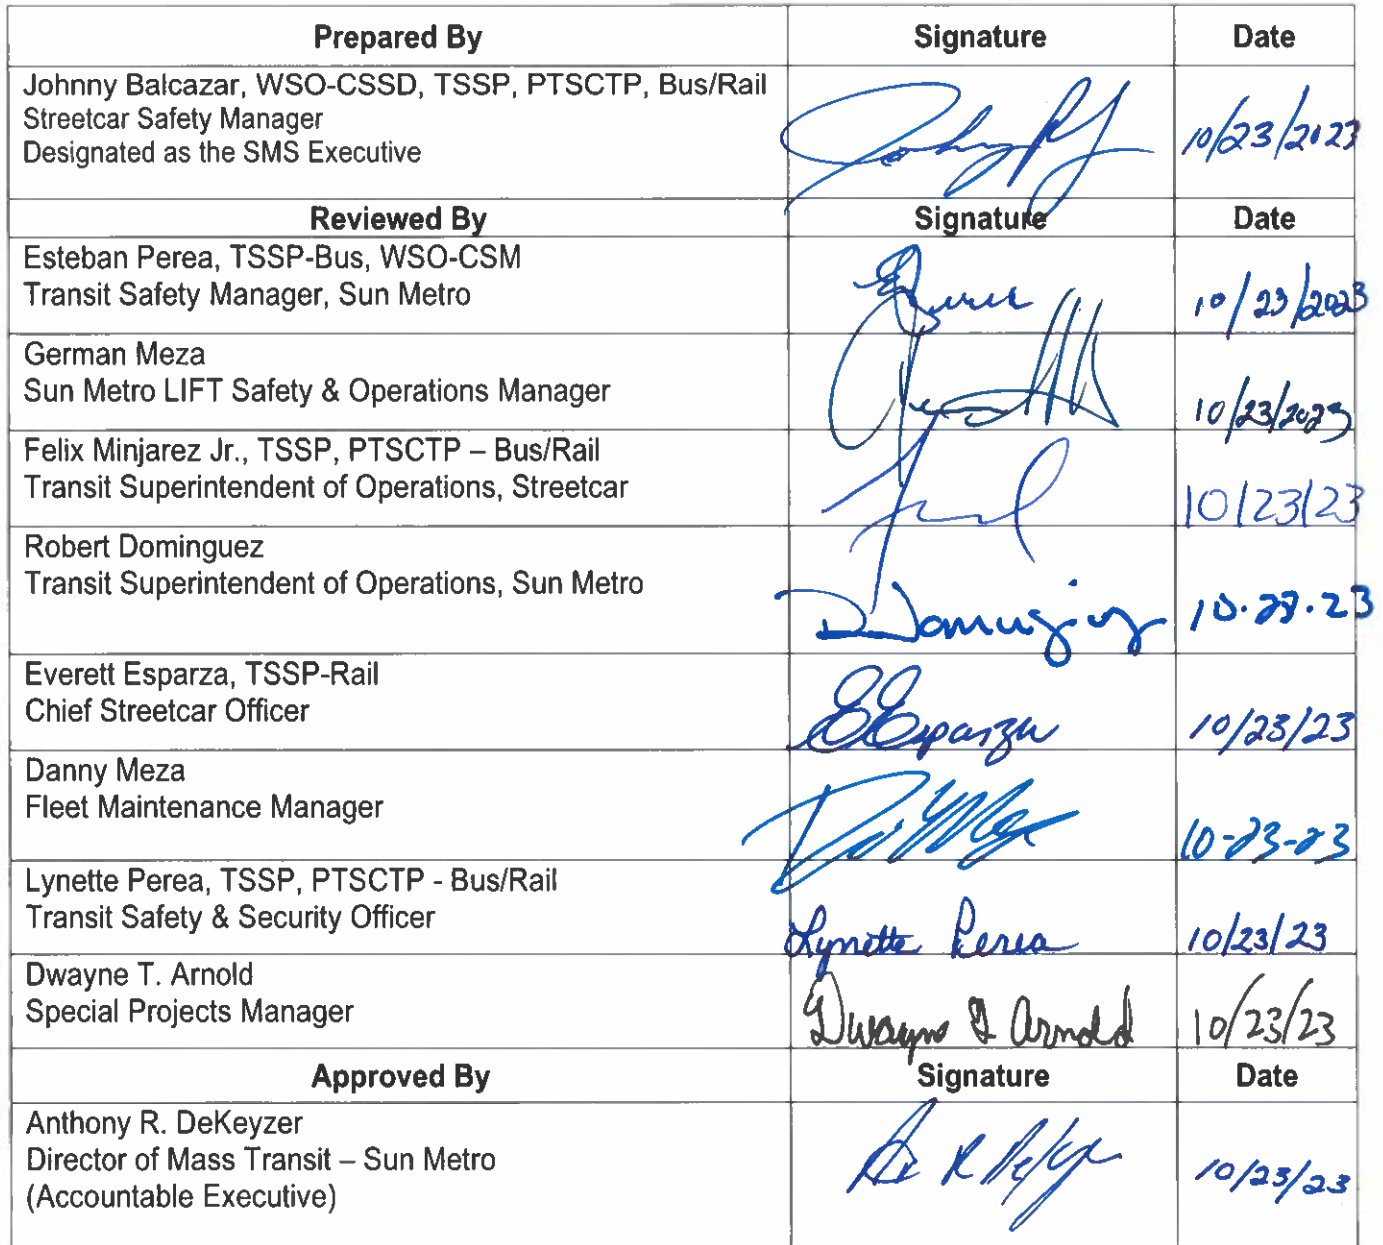 Prepared By Signature Date
Johnny Balcazar, WSO-CSSD, TSSP, PTSCTP, Bus/Rail
Streetcar Safety Manager
Designated as the SMS Executive
10/23/2023
Reviewed By Signature Date
Esteban Perea, TSSP-Bus, WSO-CSM
Transit Safety Manager, Sun Metro
10/23/2023
German Meza
Sun Metro LIFT Safety & Operations Manager
10/23/2023
Felix Minjarez Jr., TSSP, PTSCTP – Bus/Rail
Transit Superintendent of Operations, Streetcar
10/23/23
Robert Dominguez
Transit Superintendent of Operations, Sun Metro
Everett Esparza, TSSP-Rail
Chief Streetcar Officer
EEsparza 10/23/23
Danny Meza
Fleet Maintenance Manager
10-23-23
Lynette Perea, TSSP, PTSCTP - Bus/Rail
Transit Safety & Security Officer
Lynette Perea 10/23/23
Dwayne T. Arnold
Special Projects Manager
Dwayne T Arnold 10/23/23
Approved By Signature Date
Anthony R. DeKeyzer
Director of Mass Transit – Sun Metro
(Accountable Executive)
10/23/23